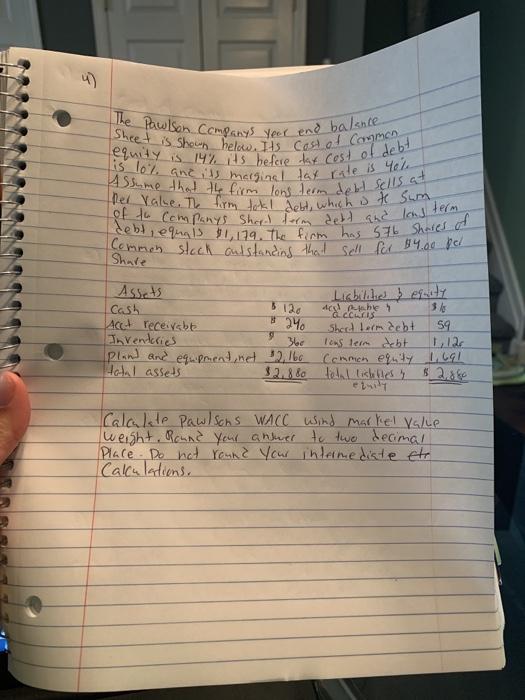 4)
The Pawlson Companys year end balance
Sheet is shown below. Its Cost of Common
equity is 14%, its before tax cost of debt
is 10%, and its marginal tax rate is 40%.
Assume that the firm long term debt sells at
Per Value. The firm total debt, which is te sum
of the Companys short term debt and long term
debt, equals $1,179. The firm has 576 Shares of
Common stock outstanding that sell for $4.00 per
Share
Assets Liabilities & equity
Cash $ 120 payable &
accurls
Acct receivable $ 240 Short term debt 59
Inventories $ 360 long term debt 1,120
Plant and equipment, net $2,160 Common equity 1,691
total assets $2,880 total liabilities & $ 2,880
equity
Calculate Pawlsons WACC using market value
weight. Round your answer to two decimal
Place. Do not round your intermediate
Calculations.